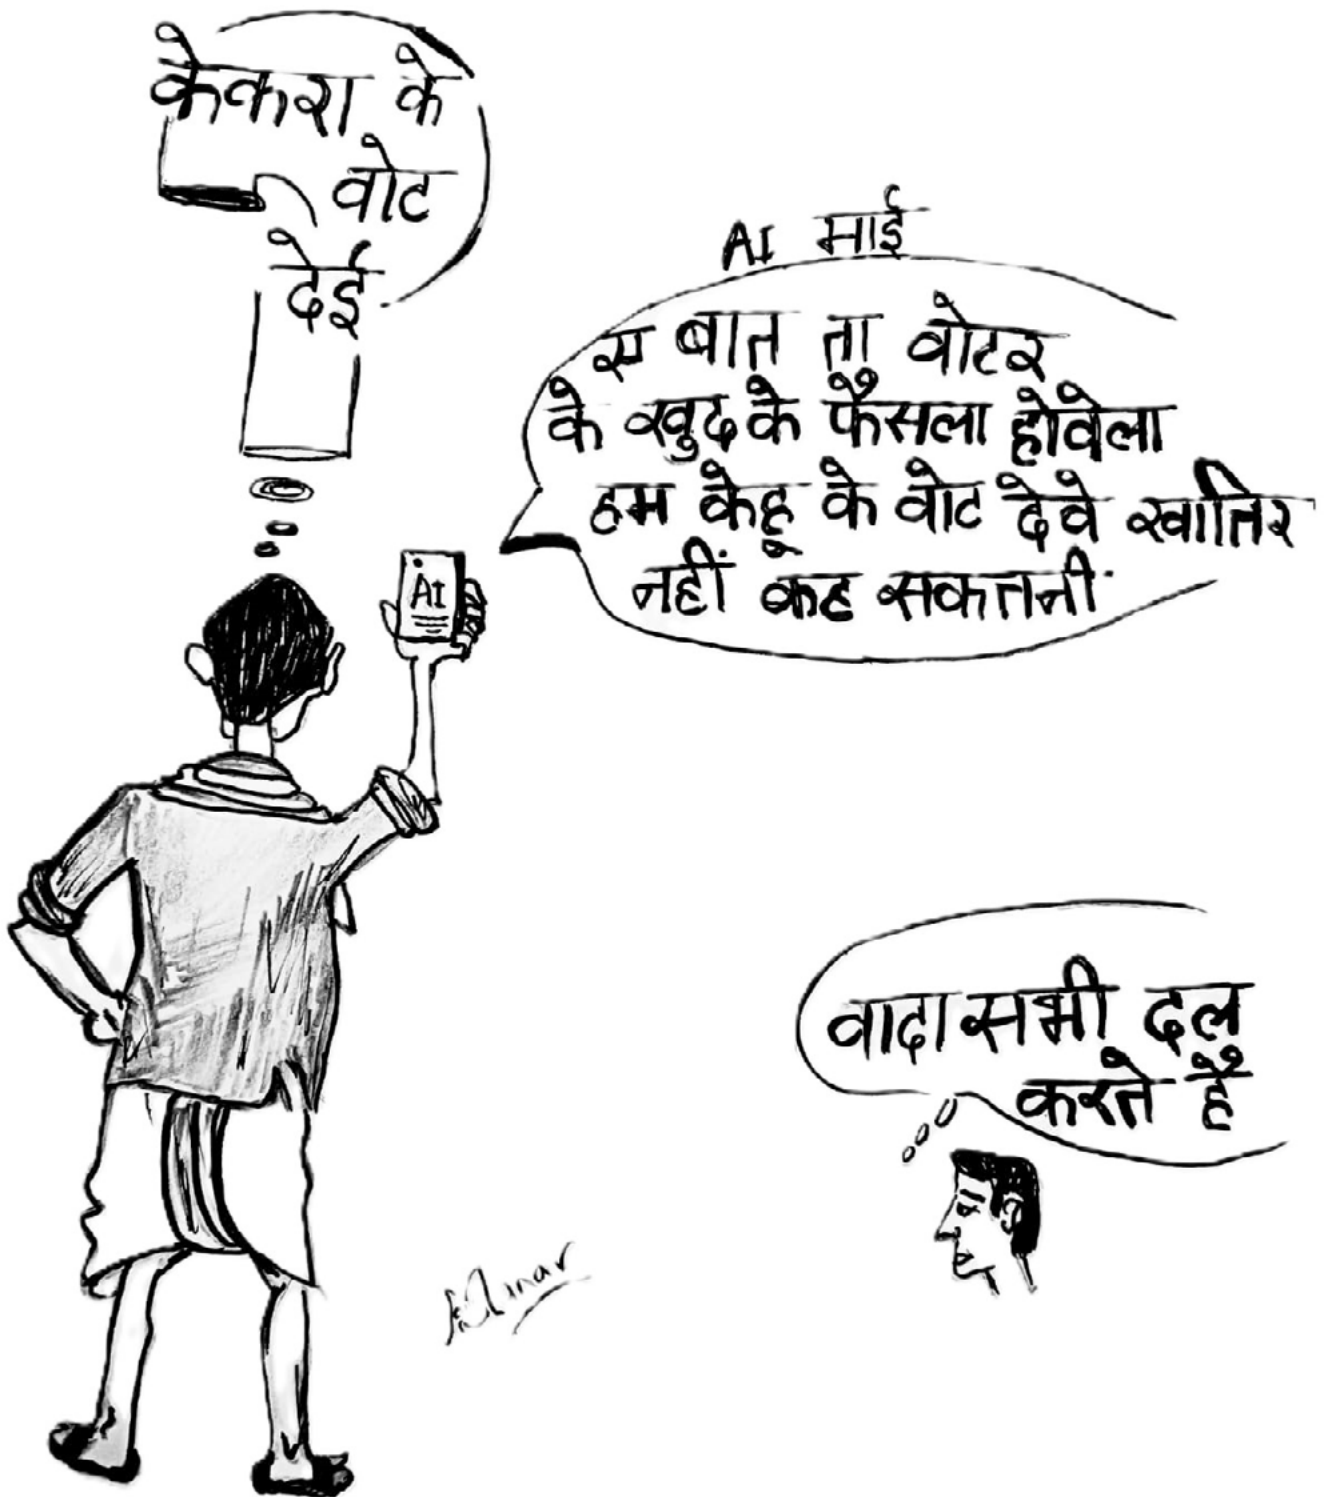 केकरा के
वोट
देई
AI माई
स बात ता वोटर
के खुद के फैसला होवेला
हम केहू के वोट देवे खातिर
नहीं कह सकतनी
AI
वादा सभी दल
करते हैं